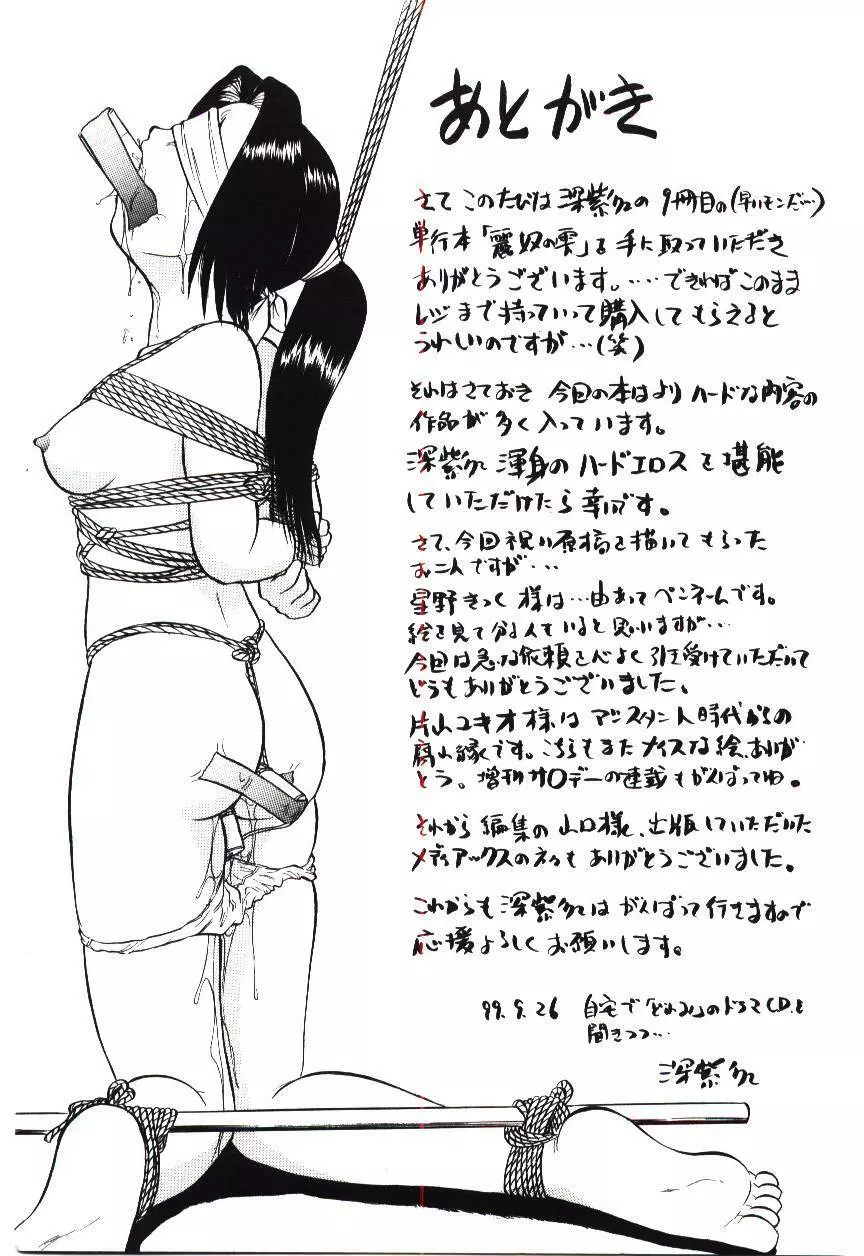 あとがき
さて このたびは 深紫の 9冊目の(早いモンだ…)
単行本「麗奴の雫」を 手に取っていただき
ありがとうございます。……できればこのまま
レジまで持っていって購入してもらえると
うれしいのですが…(笑)
それはさておき 今回の本はより ハードな内容の
作品が 多く入っています。
深紫 渾身の ハードエロスを堪能
していただけたら 幸いです。
さて、今回祝い原稿を描いてもらった
お二人ですが…
星野きっく様は…由あってペンネームです。
絵を見て分る人もいると思いますが…
今回は急な依頼を心よく引き受けていただいて
どうもありがとうございました。
片山ユキオ様は アシスタント時代からの
腐れ縁です。こちらもまた ナイスな絵、ありが
とう。増刊サ〇デーの連載もがんばってネ。
それから 編集の山口様、出版していただいた
メディアックスの もありがとうございました。
これからも 深紫は がんばって行きますので
応援よろしく お願いします。
99.9.26 自宅で「どれみ」のドラマCDを
聞きつつ…
深紫